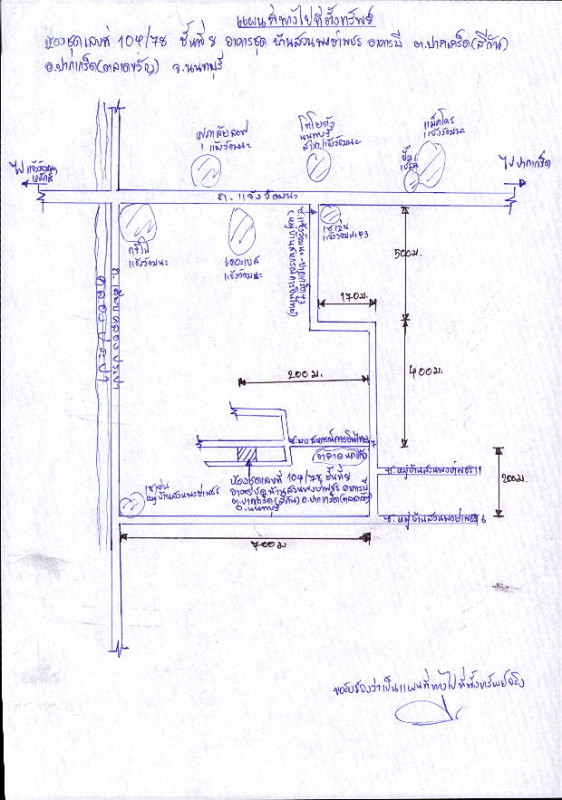 แผนที่ทางไปที่ตั้งทรัพย์
ห้องชุดเลขที่ 104/78 ชั้นที่ 8 อาคารชุด บ้านสวนพงษ์เพชร อาคารบี ต.ปากเกร็ด(สีกัน)
อ.ปากเกร็ด(ตลาดขวัญ) จ.นนทบุรี
ศุภาลัยลอฟ
แจ้งวัฒนะ
โตโยต้า
นนทบุรี
สาขาแจ้งวัฒนะ
แม็คโคร
แจ้งวัฒนะ
ไปแจ้งวัฒนะ
หลักสี่
ไปปากเกร็ด
ถ. แจ้งวัฒนะ
แจ้งวัฒนะ
แจ้งวัฒนะ
เซเว่น
500ม.
170ม.
(หมู่บ้านสหกรณ์การบินไทย)
ถ. เลียบคลองประปา
คลองประปา
200ม.
400ม.
ซ.มบ.สหกรณ์การบินไทย
ตลาด
ซ. หมู่บ้านสวนพงษ์เพชร
200ม
ห้องชุดเลขที่ 104/78 ชั้นที่8
อาคารชุด บ้านสวนพงษ์เพชร อาคารบี
ต.ปากเกร็ด(สีกัน) อ.ปากเกร็ด(ตลาดขวัญ)
จ.นนทบุรี
เซเว่น
หมู่บ้านสวนพงษ์เพชร
ซ. หมู่บ้านสวนพงษ์เพชร 6
700ม
ขอรับรองว่าเป็นแผนที่ทางไปที่ตั้งทรัพย์จริง